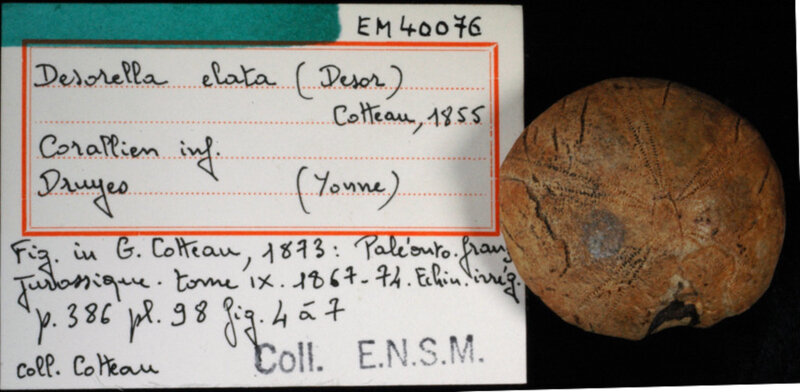 EM40076
Desorella elata (Desor)
Cotteau, 1855
Corallien inf.
Druyes (Yonne)
Fig. in G. Cotteau, 1873: Paléonto. franç.
Jurassique. tome IX. 1867-74. Echin. irrég.
p. 386 pl. 98 fig. 4 à 7
coll. Cotteau Coll. E.N.S.M.